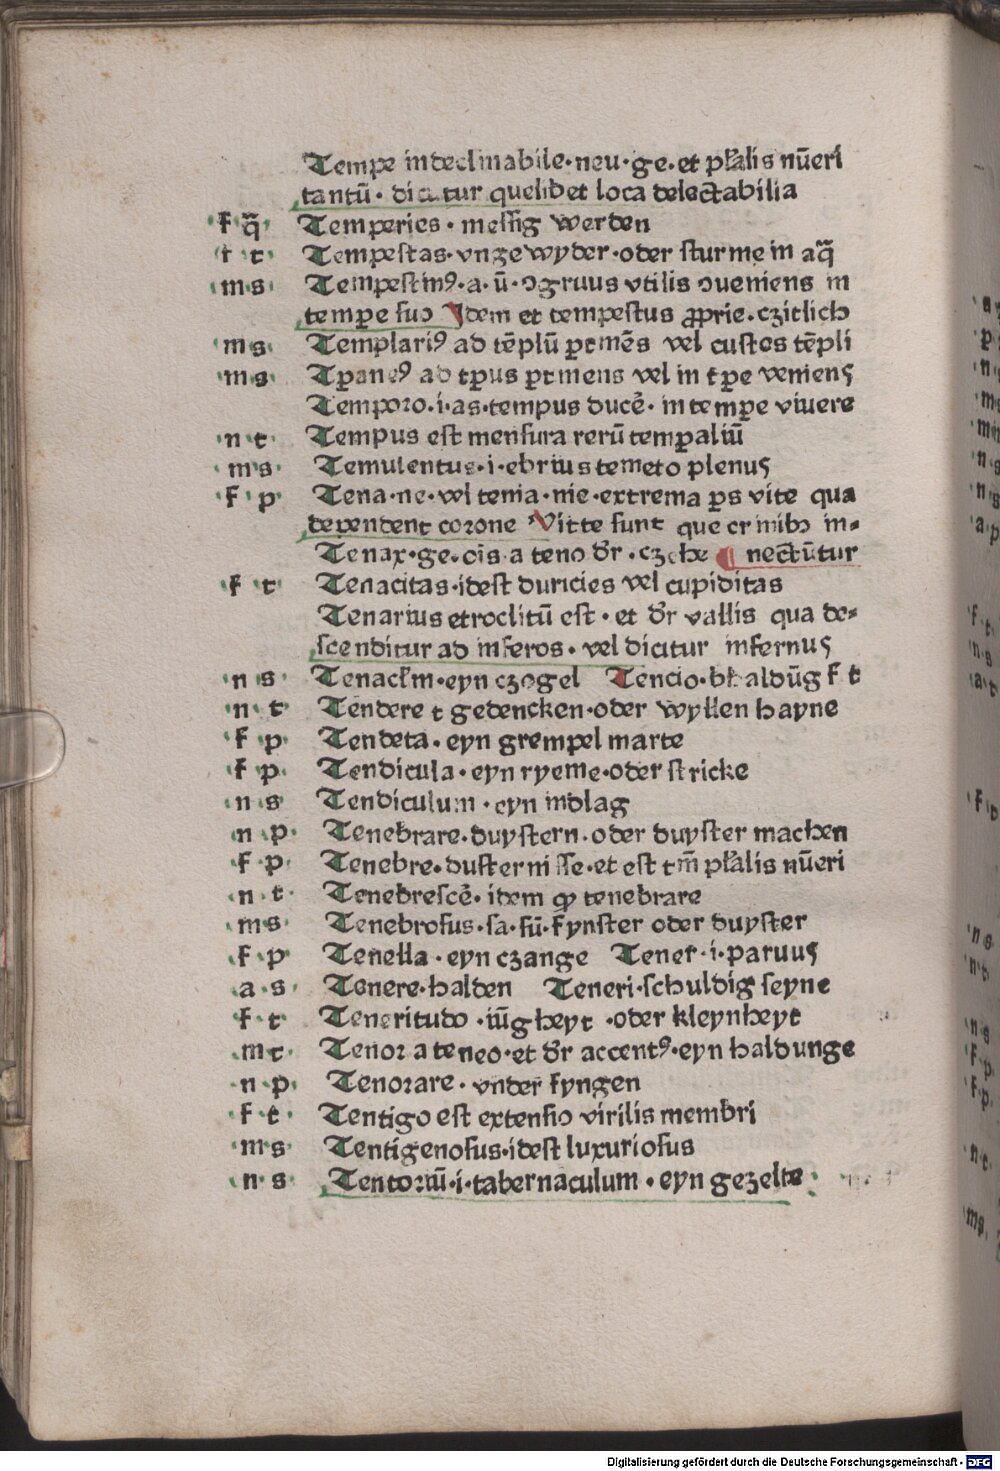 Tempe indeclinabile·neu·ge·et płalis nūeri
tantū· dicitur quelibet loca delectabilia
·f q̄· Temperies· messig werden
·f·t· Tempestas·vngewyder·oder sturme in aq̄
·m·s· Tempestinꝰ·a·ū·ↄgruus vtilis ↄueniens in
tempe suo Idem et tempestus ꝓprie·czitlich
·m·s· Templariꝰ ad tēplū ꝑtinēs vel custos tēpli
·m·s· Tꝑaneꝰ ad tꝑus ꝑtinens vel in tꝑe veniens
Temporo·i·as·tempus ducē· in tempe viuere
·n·t· Tempus est mensura rerū temꝑaliū
·m·s· Temulentus·i·ebrius temeto plenus
·f·p· Tena·ne·vel tenia·nie·extrema ꝑs vite qua
dependent corone Vitte sunt que crinibꝫ in-
Tenax·ge·oīs·a teno dr̄·czehe ¶ nectūtur
·f·t· Tenacitas·idest duricies vel cupiditas
Tenarius etroclitū est·et dr̄ vallis qua de-
scenditur ad inferos·vel dicitur infernus
·n·s· Tenacłm·eyn czogel Tencio·bhaldūg f t
·n·t· Tendere t gedencken·oder wyllen hayne
·f·p· Tendeta·eyn grempel marte
·f·p· Tendicula·eyn ryeme·oder stricke
·n·s· Tendiculum·eyn inslag
·n·p· Tenebrare·duystern·oder duyster machen
·f·p· Tenebre·dusternisse·et est tm̄ płalis nūeri
·n·t· Tenebrescē·idem ꝙ tenebrare
·m·s· Tenebrosus·sa·sū·fynster oder duyster
·f·p· Tenella·eyn czange Tener·i·paruus
·a·s· Tenere·halden Teneri·schuldig seyne
·f·t· Teneritudo·iūgheyt·oder kleynheyt
·m·t· Tenor a teneo·et dr̄ accentꝰ·eyn haldunge
·n·p· Tenorare·vnder syngen
·f·t· Tentigo est extensio virilis membri
·m·s· Tentigenosus·idest luxuriosus
·n·s· Tentoriū·i·tabernaculum·eyn gezelte
Digitalisierung gefördert durch die Deutsche Forschungsgemeinschaft - DFG